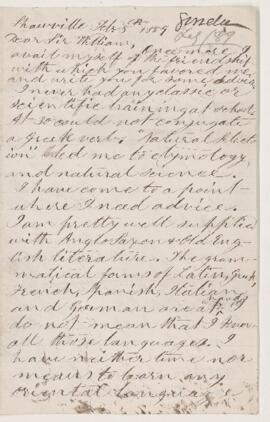 Feb 5th 1889
Dear Sir William,
Once more I
avail myself of the friendship
with which you favored me
and write you for some advice.
I never had any classic or
scientific training at school.
So could not conjugate
a greek verb. "Natural Selection"
led me to etymology
and natural science.
I have come to a point
where I need advice.
I am pretty well supplied
with Anglo Saxon & Old Eng-
lish literature. The gram-
matical forms of Latin, Greek,
French, Spanish, Italian
and German are
do not mean that I know
all those languages. I
have neither time nor
means to learn any
oriental language